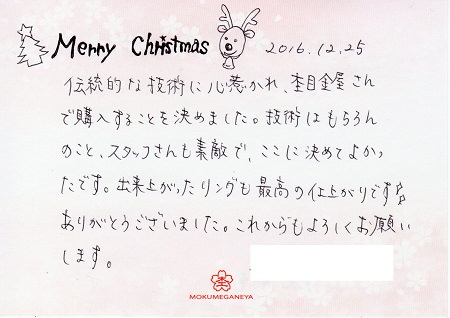 Merry Christmas 2016.12.25
伝統的な技術に心惹かれ、杢目金屋さん
で購入することを決めました。技術はもちろん
のこと、スタッフさんも素敵で、ここに決めてよかっ
たです。出来上がったリングも最高の仕上がりです。
ありがとうございました。これからもよろしくお願い
します。
MOKUMEGANEYA